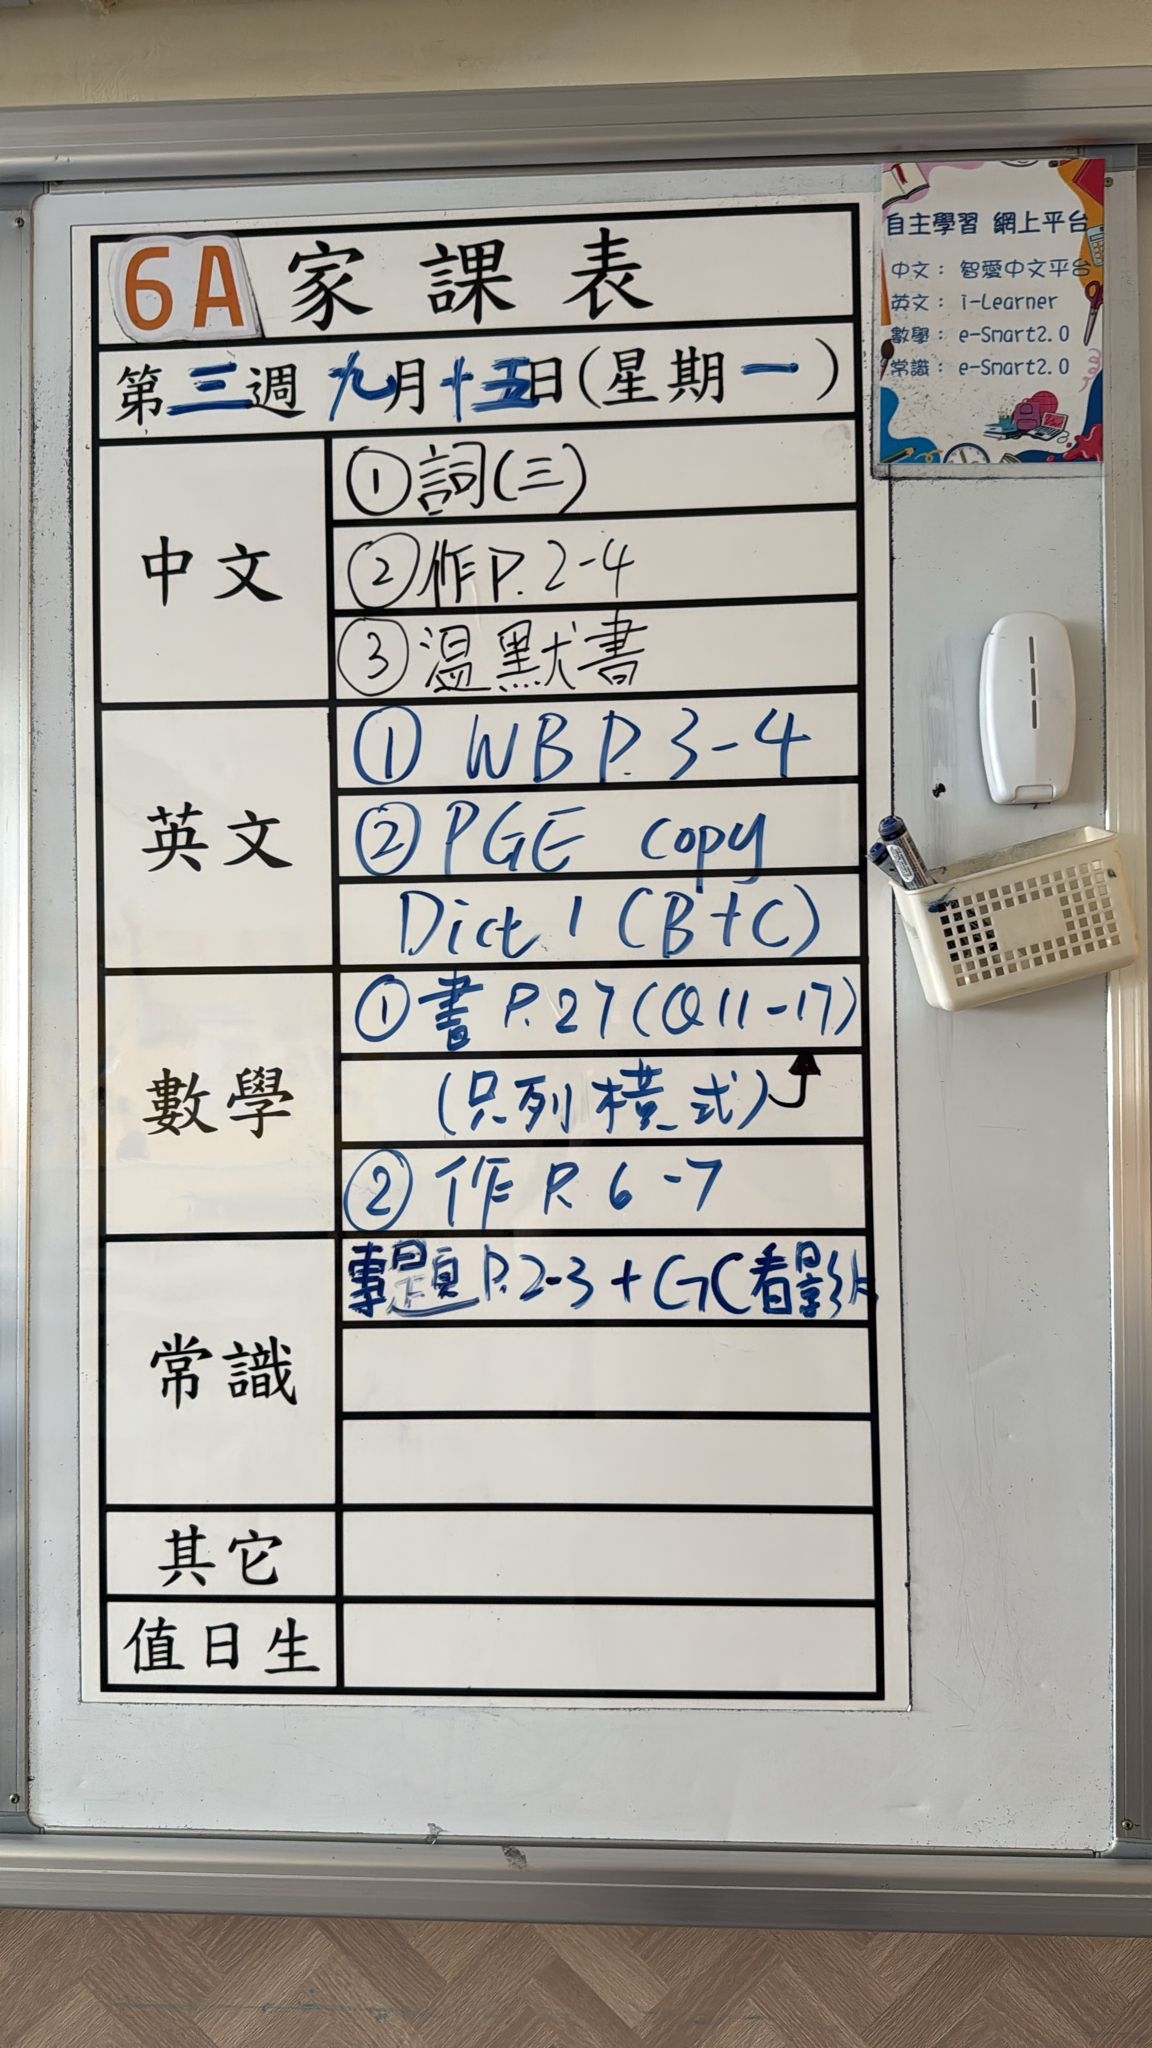 6A 家課表
第三週 九月十五日(星期一)
中文
①詞(三)
②作P.2-4
③溫默書
英文
① WB P.3-4
② PGE copy
Dict 1 (B+C)
數學
①書 P.27(Q11-17)
(只列橫式)
②作P.6-7
常識
專題P.2-3+GC看影片
其它
值日生
自主學習 網上平台
中文：智愛中文平台
英文：i-Learner
數學：e-Smart2.0
常識：e-Smart2.0